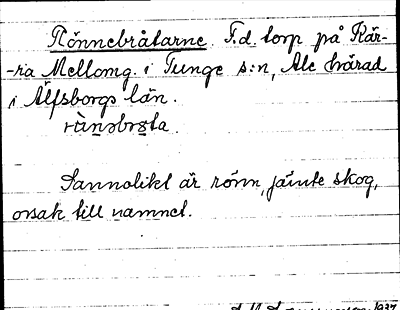 Rönnebråtarne. F.d. torp på Kär-
-ra Mellomg. i Tunge s:n, Ale härad
i Älfsborgs län.
Sannolikt är rönn, jämte skog,
orsak till namnet.
1927